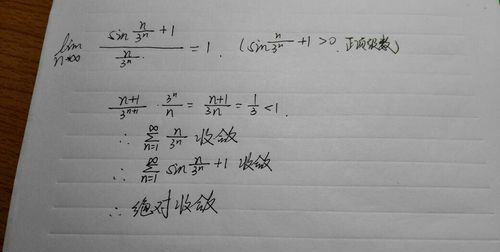 lim n→∞ (sin n/3ⁿ +1)/(n/3ⁿ) = 1. (sin n/3ⁿ +1 >0. 正项级数)
(n+1)/3ⁿ⁺¹ · 3ⁿ/n = (n+1)/3n = 1/3 < 1.
∴ ∑_{n=1}^{∞} n/3ⁿ 收敛
∴ ∑_{n=1}^{∞} sin n/3ⁿ +1 收敛
∴ 绝对收敛